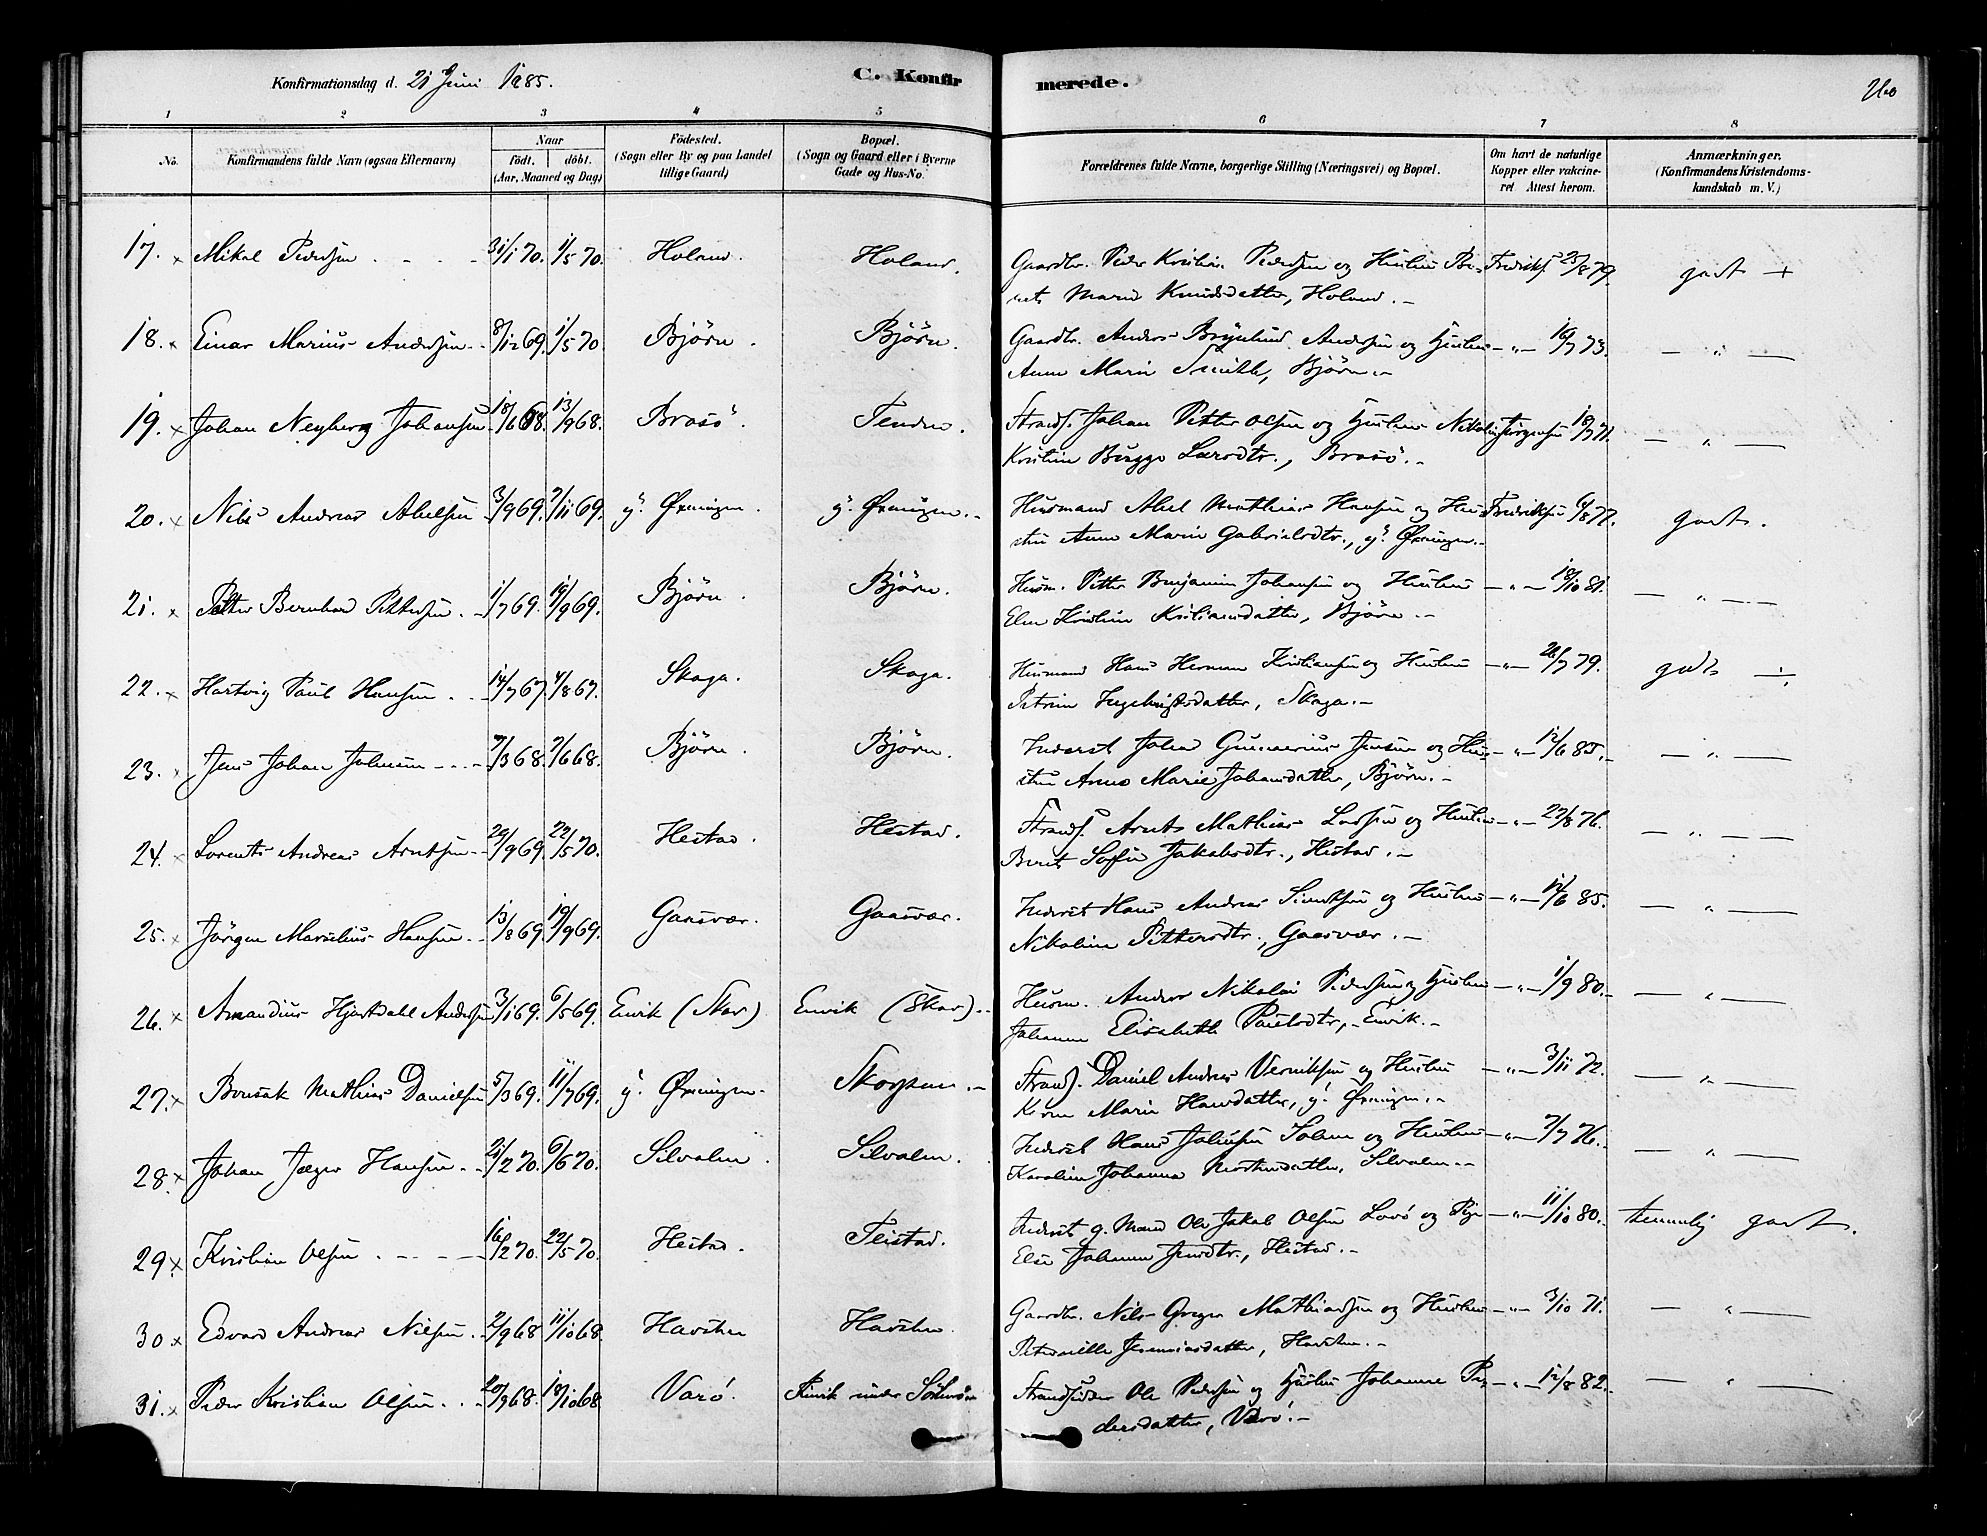 Konfirmationsdag d. 21 Juni 1885.
C. Konfirmerede.
260
1 2 3 4 5 6 7 8
No. Konfirmandens fulde Navn (ogsaa Efternavn) Naar født. døbt. (Aar, Maaned og Dag) Födested. (Sogn eller By og paa Landet tillige Gaard) Bopæl. (Sogn og Gaard eller i Byerne Gade og Hus-No. Forældrenes fulde Navne, borgerlige Stilling (Næringsvei) og Bopæl. Om havt de naturlige Kopper eller vakcineret Attest herom. Anmærkninger. (Konfirmandens Kristendomskundskab m. V.)
17. x Mikal Pedersen 31/1 70. 1/5 70. Holand. Holand. Gaardbr. Peder Kristian Pedersen og Hustru Be- Fredriks. 25/8 79. godt +
ret Marie Knudsdatter, Holand.
18. x Einar Marius Andersen 8/12 69. 1/5 70. Bjørn. Bjørn. Gaardbr. Anders Brynlund Andersen og Hustru —„— 16/7 73. — „ —
Anne Marie Smith, Bjørn.
19. x Johan Neyberg Johansen 18/6 68. 13/9 68. Brasö. Tenden. Strands. Johan Petter Olsen og Hustru Nikoline Jörgensen 18/7 71. — „ —
Kristine Bugge Larsdtr., Brasö.
20. x Nils Andreas Abelsen 3/9 69. 7/11 69. y. Øxningen. y. Øxningen. Husmand Abel Mathias Hansen og Hus- Fredriksen 6/8 77. godt.
tru Anne Marie Gabrielsdtr., y. Øxningen.
21. x Petter Bernhard Pettersen 1/7 69. 19/9 69. Bjørn. Bjørn. Husm. Petter Benjamin Johansen og Hustru —„— 18/10 81. — „ —
Elen Kristine Kristiansdatter, Bjørn.
22. x Hartvig Paul Hansen 14/7 67. 4/8 67. Skaga. Skaga. Husmand Hans Herman Kristiansen og Hustru —„— 26/7 79. godt ÷
Petrine Ingebrigtsdatter, Skaga.
23. x Jens Johan Johnsen 7/3 68. 7/6 68. Bjørn. Bjørn. Inderst Johan Gunnerius Jensen og Hus- —„— 12/6 85. — „ —
tru Anne Marie Johansdatter, Bjørn.
24. x Lorents Andreas Arntsen 29/9 69. 22/5 70. Hestad. Hestad. Strands. Arnt Mathias Larsen og Hustru —„— 27/8 76. — „ —
Berit Sofie Jakobsdtr., Hestad.
25. x Jørgen Marselius Hansen 13/8 69. 19/9 69. Gaasvær. Gaasvær. Inderst Hans Andreas Simonsen og Hustru —„— 14/6 85. — „ —
Nikoline Pettersdtr., Gaasvær.
26. x Amandius Hjortdahl Andersen 3/1 69. 6/5 69. Envik (Skar) Envik (Skar). Husm. Anders Nikolai Pedersen og Hustru —„— 1/9 80. — „ —
Johanne Elisabeth Paulsdtr, Envik.
27. x Benesak Mathias Danielsen 5/3 69. 11/7 69. y. Øxningen. Skogsan. Strands. Daniel Andreas Verniksen og Hustru —„— 3/11 72. — „ —
Karen Marie Hansdatter, y. Øxningen.
28. x Johan Jæger Hansen 21/2 70. 6/6 70. Silvalen. Silvalen. Inderst Hans Johnsen Solem og Hustru —„— 7/7 76. — „ —
Karoline Johanna Mortensdatter, Silvalen.
29. x Kristian Olsen 16/2 70. 22/5 70. Hestad. Teistad. Inderst g. Mand Ole Jakob Olsen Lovö og Pige —„— 11/10 80. temmelig godt.
Else Johanne Jensdtr., Hestad.
30. x Edvard Andreas Nilsen 2/9 68 11/10 68. Havsten Havsten. Gaardbr. Nils Greger Mathiassen og Hustru —„— 3/10 71. — „ —
Peternille Jeremiasdatter, Havsten.
31. x Peder Kristian Olsen 20/9 68. 18/10 68 Varö. Finvik under Strandsidder Ole Pedersen og Hustru Johanne Pe- —„— 12/8 82. — „ —
dersdatter, Varö.